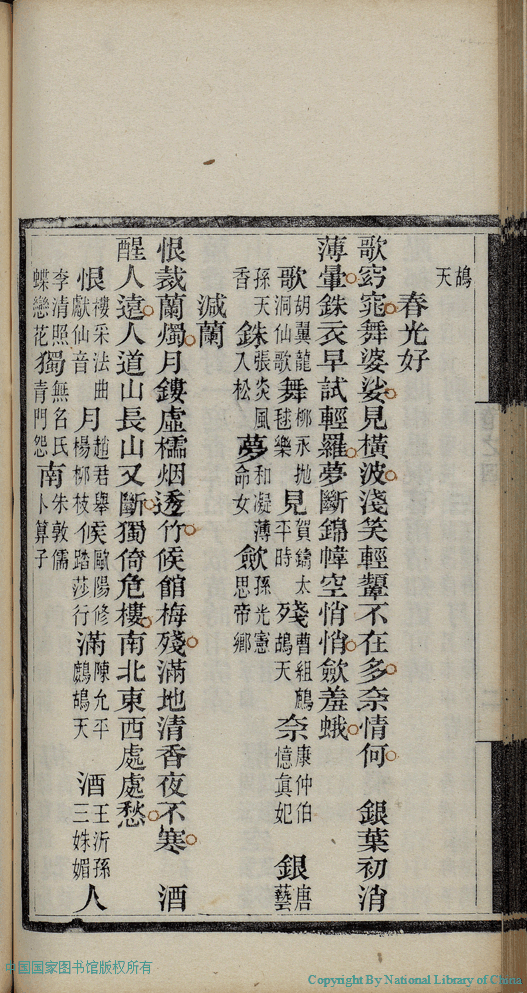 鴣
天
春光好
歌窈窕舞婆娑見橫波淺笑輕顰不在多奈情何　銀葉初消
薄暈銖衣早試輕羅夢斷錦幃空悄悄斂羞蛾
歌胡翼龍洞仙歌舞柳永拋毬樂見賀鑄太平時殘曹組鷓鴣天奈康仲伯憶眞妃銀唐藝
孫天香銖張炎風入松夢和凝薄命女斂孫光憲思帝鄉
減蘭
恨裁蘭燭月鏤虛櫺烟透竹候館梅殘滿地清香夜不寒　酒
醒人遠人道山長山又斷獨倚危樓南北東西處處愁
恨樓采法曲獻仙音月趙君舉楊柳枝候歐陽修踏莎行滿陳允平鷓鴣天　酒王沂孫三姝媚人
李清照蝶戀花獨無名氏青門怨南朱敦儒卜算子
中国国家图书馆版权所有
Copyright By National Library of China